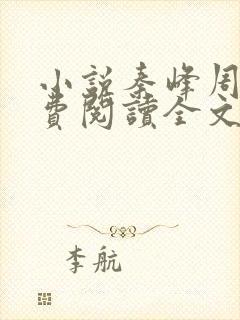 小説秦峰周
費閱讀全文
李航